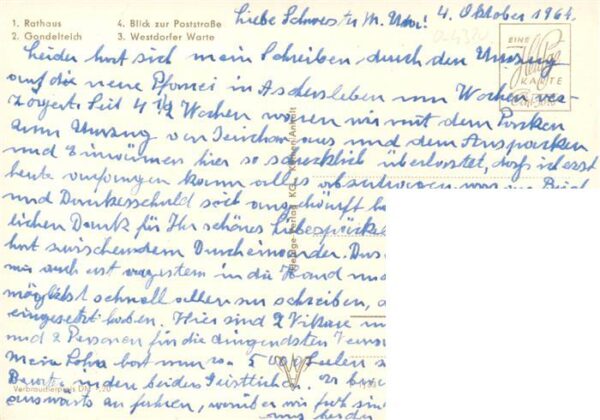 1. Rathaus
2. Gondelteich
4. Blick zur Poststraße
3. Westdorfer Warte
4. Oktober 1964.
Liebe Schwester M.
EINE
Heldge
KARTE
Leider hat sich mein Schreiben durch den Umzug
auf die neue Pfarrei in Aschersleben um Wochen ver-
zögert. Seit 4 1/2 Wochen waren wir mit dem Packen
zum Umzug von aus und dem Auspacken
und Einräumen hier so schrecklich überlastet, daß ich erst
heute anfangen kann alles abzutragen, was an Brief
und Dankesschuld sich angehäuft
lichen Dank für Ihr schönes Liebespäckchen
hat zwischen dem Durcheinander. Das
mir auch erst vorgestern in die Hand und
möglichst schnell allen zu schreiben,
eingesetzt haben. Hier sind 2 Vikare
und 2 Personen für die dringendsten
Mein Sohn hat nun ca. 5 000 Seelen
in den beiden Geistlichen.
auswärts zu fahren, worüber wir froh sind
uns beiden
Verbraucherpreis DM
Heldge Verlag KG Köthen/Anhalt